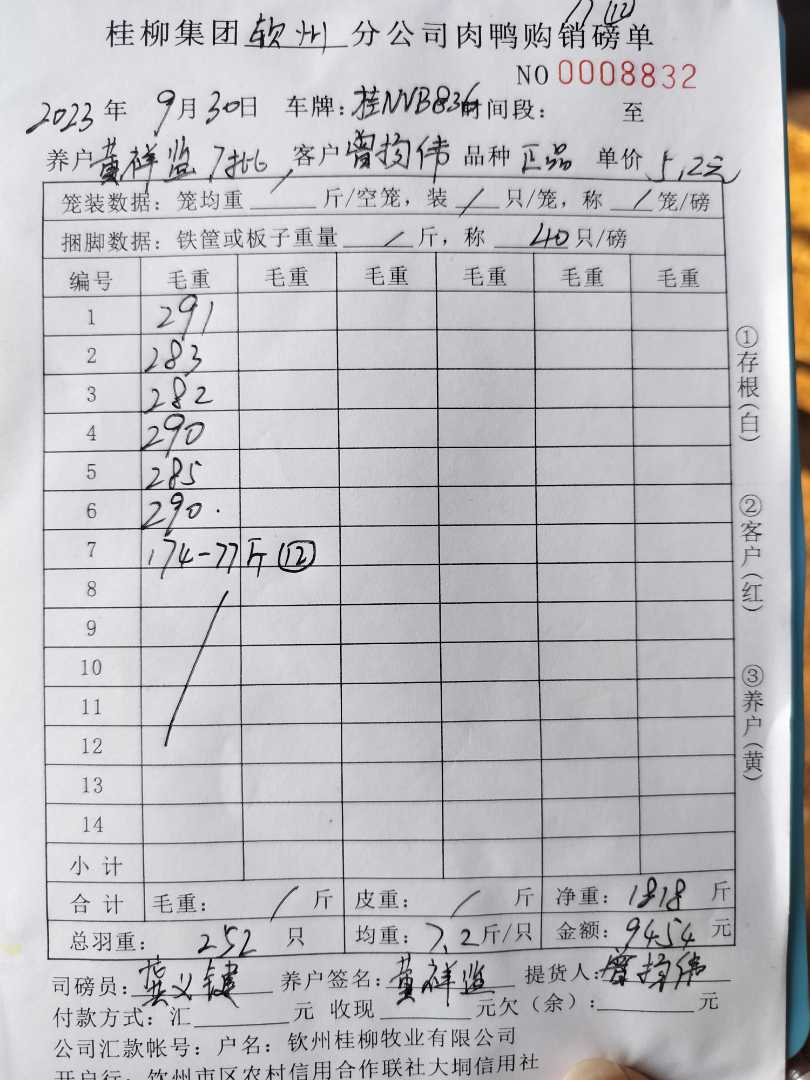 17 ⑫
桂柳集团钦州分公司肉鸭购销磅单
NO 0008832
2023年 9月30日 车牌:桂NVB836 时间段: 至
养户黄祥监7批 客户曾扬伟 品种正品 单价5.2元
笼装数据:笼均重 / 斤/空笼,装 / 只/笼,称 / 笼/磅
捆脚数据:铁筐或板子重量 / 斤,称 40只/磅
编号 毛重 毛重 毛重 毛重 毛重 毛重
1 291
2 283
3 282
4 290
5 285
6 290.
7 174-77斤⑫
8
9
10
11
12
13
14
小计
合计 毛重: / 斤 皮重: / 斤 净重:1818斤
总羽重:252只 均重:7.2斤/只 金额:9454元
司磅员:龚义键 养户签名:黄祥监 提货人:曾扬伟
付款方式:汇 元 收现 元欠(余): 元
公司汇款帐号:户名:钦州桂柳牧业有限公司
开户行:钦州市区农村信用合作联社大垌信用社
①存根(白)
②客户(红)
③养户(黄)